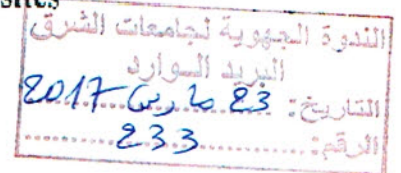 sites
الندوة الجهوية لجامعات الشرق
البريد الوارد
التاريخ: 23 مارس 2017
الرقم: 233